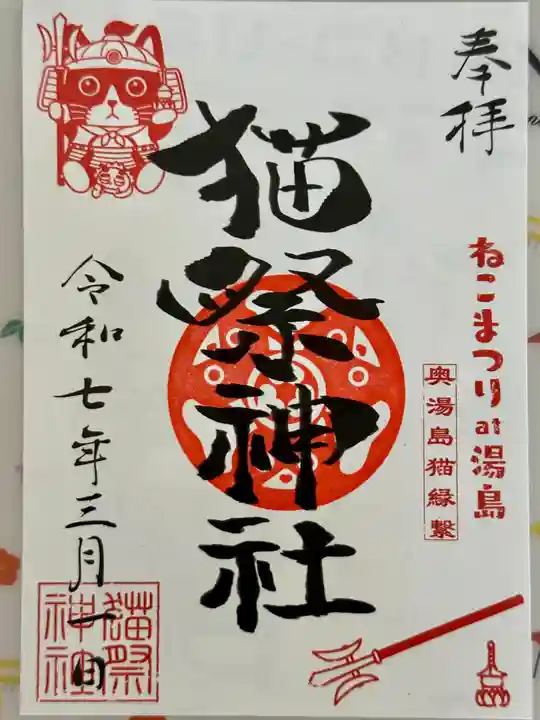 奉拝
ねこまつりat湯島
奥湯島猫縁繋
猫祭神社
令和七年三月一日
猫祭
神社